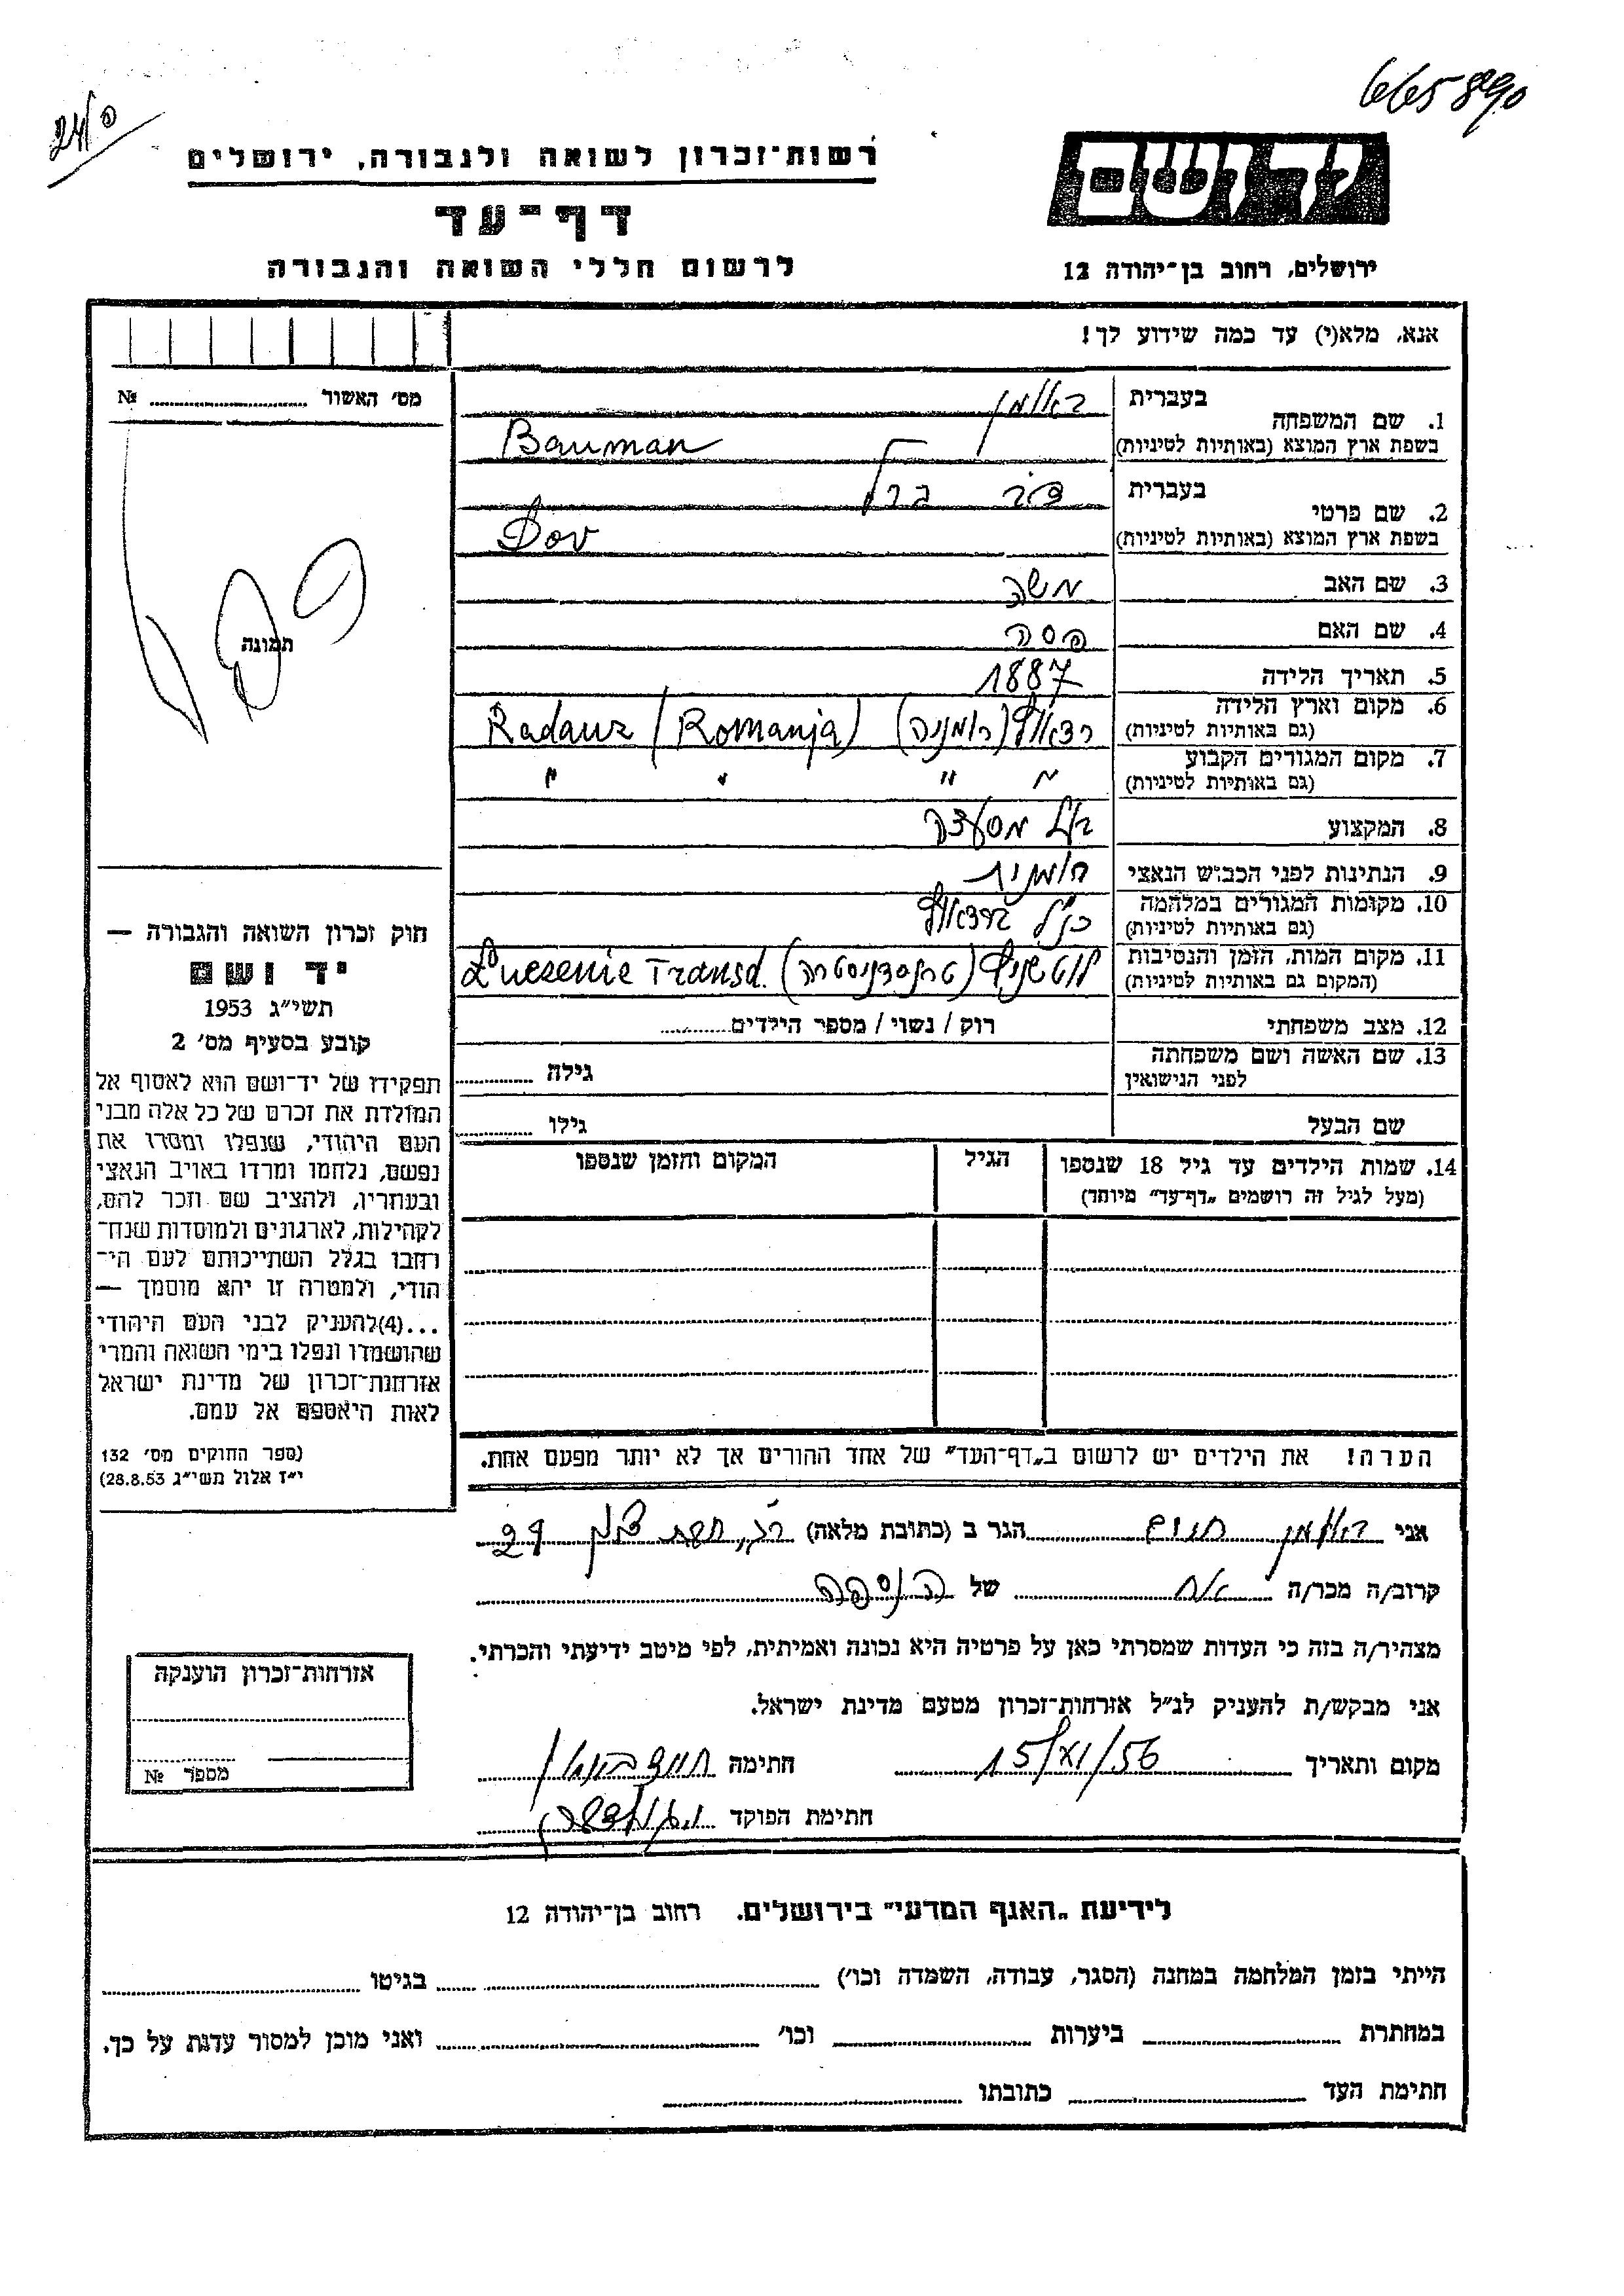 665890
240
רשות־זכרון לשואה ולגבורה, ירושלים
דף־עד
לרשום חללי השואה והגבורה
יד ושם
ירושלים, רחוב בן־יהודה 12
אנא, מלא(י) עד כמה שידוע לך!
מס׳ האשור № 
1. שם המשפחה בעברית באומן
בשפת ארץ המוצא (באותיות לטיניות) Bauman
2. שם פרטי בעברית דוב ברל
בשפת ארץ המוצא (באותיות לטיניות) Dov
3. שם האב משה
4. שם האם פסה
5. תאריך הלידה 1887
6. מקום וארץ הלידה (גם באותיות לטיניות) רדאוץ (רומניה) Radauz (Romanja)
7. מקום המגורים הקבוע (גם באותיות לטיניות) " " " "
8. המקצוע בעל מסעדה
9. הנתינות לפני הכבוש הנאצי רומנית
10. מקומות המגורים במלחמה (גם באותיות לטיניות) כנ"ל ברדאוץ
11. מקום המות, הזמן והנסיבות (המקום גם באותיות לטיניות) (טרנסדניסטריה) Transd.
12. מצב משפחתי רוק / נשוי / מספר הילדים
13. שם האשה ושם משפחתה לפני הנישואין גילה
שם הבעל גילו
14. שמות הילדים עד גיל 18 שנספו הגיל המקום והזמן שנספו
(מעל לגיל זה רושמים „דף־עד” מיוחד)
הערה! את הילדים יש לרשום ב„דף־העד” של אחד ההורים אך לא יותר מפעם אחת.
תמונה
חוק זכרון השואה והגבורה —
יד ושם
תשי״ג 1953
קובע בסעיף מס׳ 2
תפקידו של יד־ושם הוא לאסוף אל
המולדת את זכרם של כל אלה מבני
העם היהודי, שנפלו ומסרו את
נפשם, נלחמו ומרדו באויב הנאצי
ובעוזריו, ולהציב שם וזכר להם,
לקהילות, לארגונים ולמוסדות שנח־
רבו בגלל השתייכותם לעם הי־
הודי, ולמטרה זו יהא מוסמך —
...(4)להעניק לבני העם היהודי
שהושמדו ונפלו בימי השואה והמרי
אזרחות־זכרון של מדינת ישראל
לאות היאספם אל עמם.
(ספר החוקים מס׳ 132
י״ז אלול תשי״ג 28.8.53)
אני באומן חיים הגר ב (כתובת מלאה) 29
קרוב/ה מכר/ה אח של הנספה
מצהיר/ה בזה כי העדות שמסרתי כאן על פרטיה היא נכונה ואמיתית, לפי מיטב ידיעתי והכרתי.
אני מבקש/ת להעניק לנ״ל אזרחות־זכרון מטעם מדינת ישראל.
מקום ותאריך 15/VI/56 חתימה חיים באומן
חתימת הפוקד
אזרחות־זכרון הוענקה
מספר №
לידיעת „האגף המדעי” בירושלים. רחוב בן־יהודה 12
הייתי בזמן המלחמה במחנה (הסגר, עבודה, השמדה וכו׳) בגיטו
במחתרת ביערות וכו׳ ואני מוכן למסור עדות על כך.
חתימת העד כתובתו